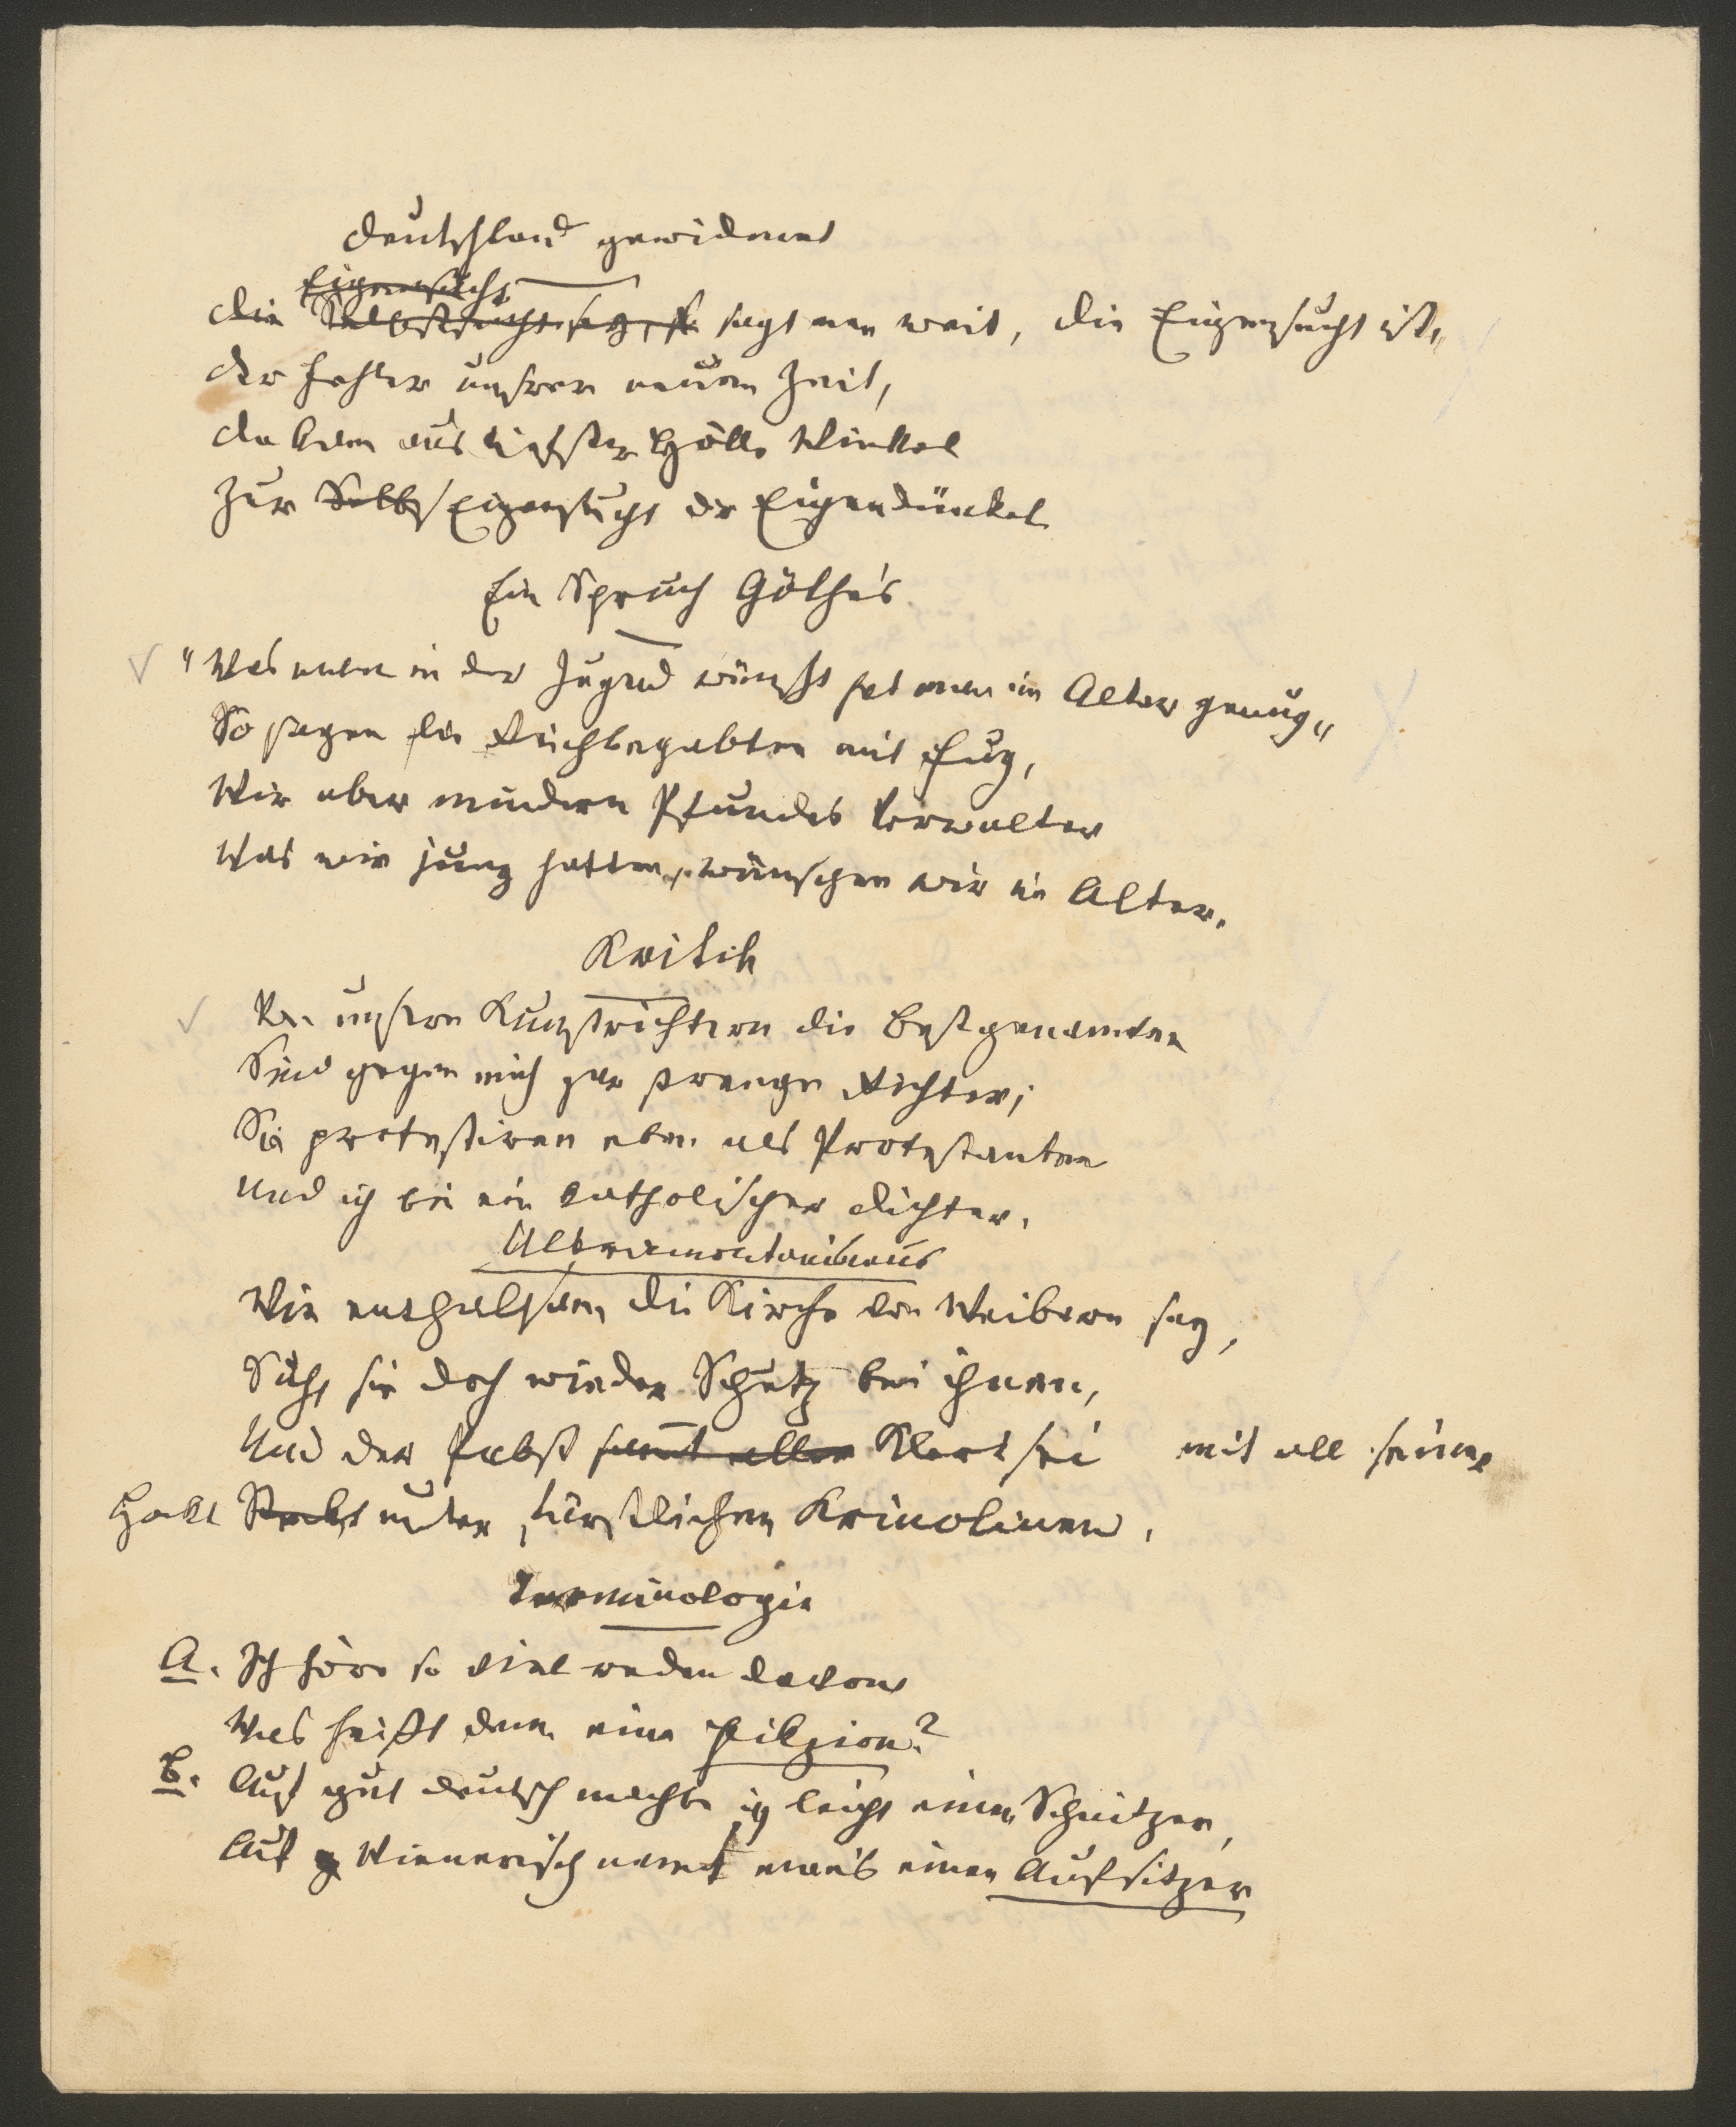 Deutschland gewidmet
Eigensucht
Die Selbstsucht sagt man weit, die Eigensucht ist,
Der Fehler unsrer neuen Zeit,
Da kam aus tiefster Hölle Winkel
Zur Selbs Eigensucht der Eigendünkel
Ein Spruch Göthe's
"Was man in der Jugend wünscht hat man im Alter genug"
So sagen die Reichbegabten mit Fug,
Wir aber mindern Pfundes Verwalter
Was wir jung hatten, wünschen wir im Alter.
Kritik
Von unsern Kunstrichtern die bestgenannten
Sind gegen mich gar strenge Richter;
Sie protestiren eben als Protestanten
Und ich bin ein katholischer Dichter.
Ultramontanismus
Wie enthaltsam die Kirche von Weibern sey,
Sucht sie doch wieder Schutz bei ihnen,
Und der Pabst sammt aller Klerisei mit all seiner
Hockt Steckt unter fürstlichen Krinolinen.
Terminologie
A. Ich höre so viel reden davon
Was heißt denn eine Pilzion?
B. Auf gut deutsch machte ich leicht einen Schnitzer,
Auf g Wienerisch nennt man's einen Aufsitzer